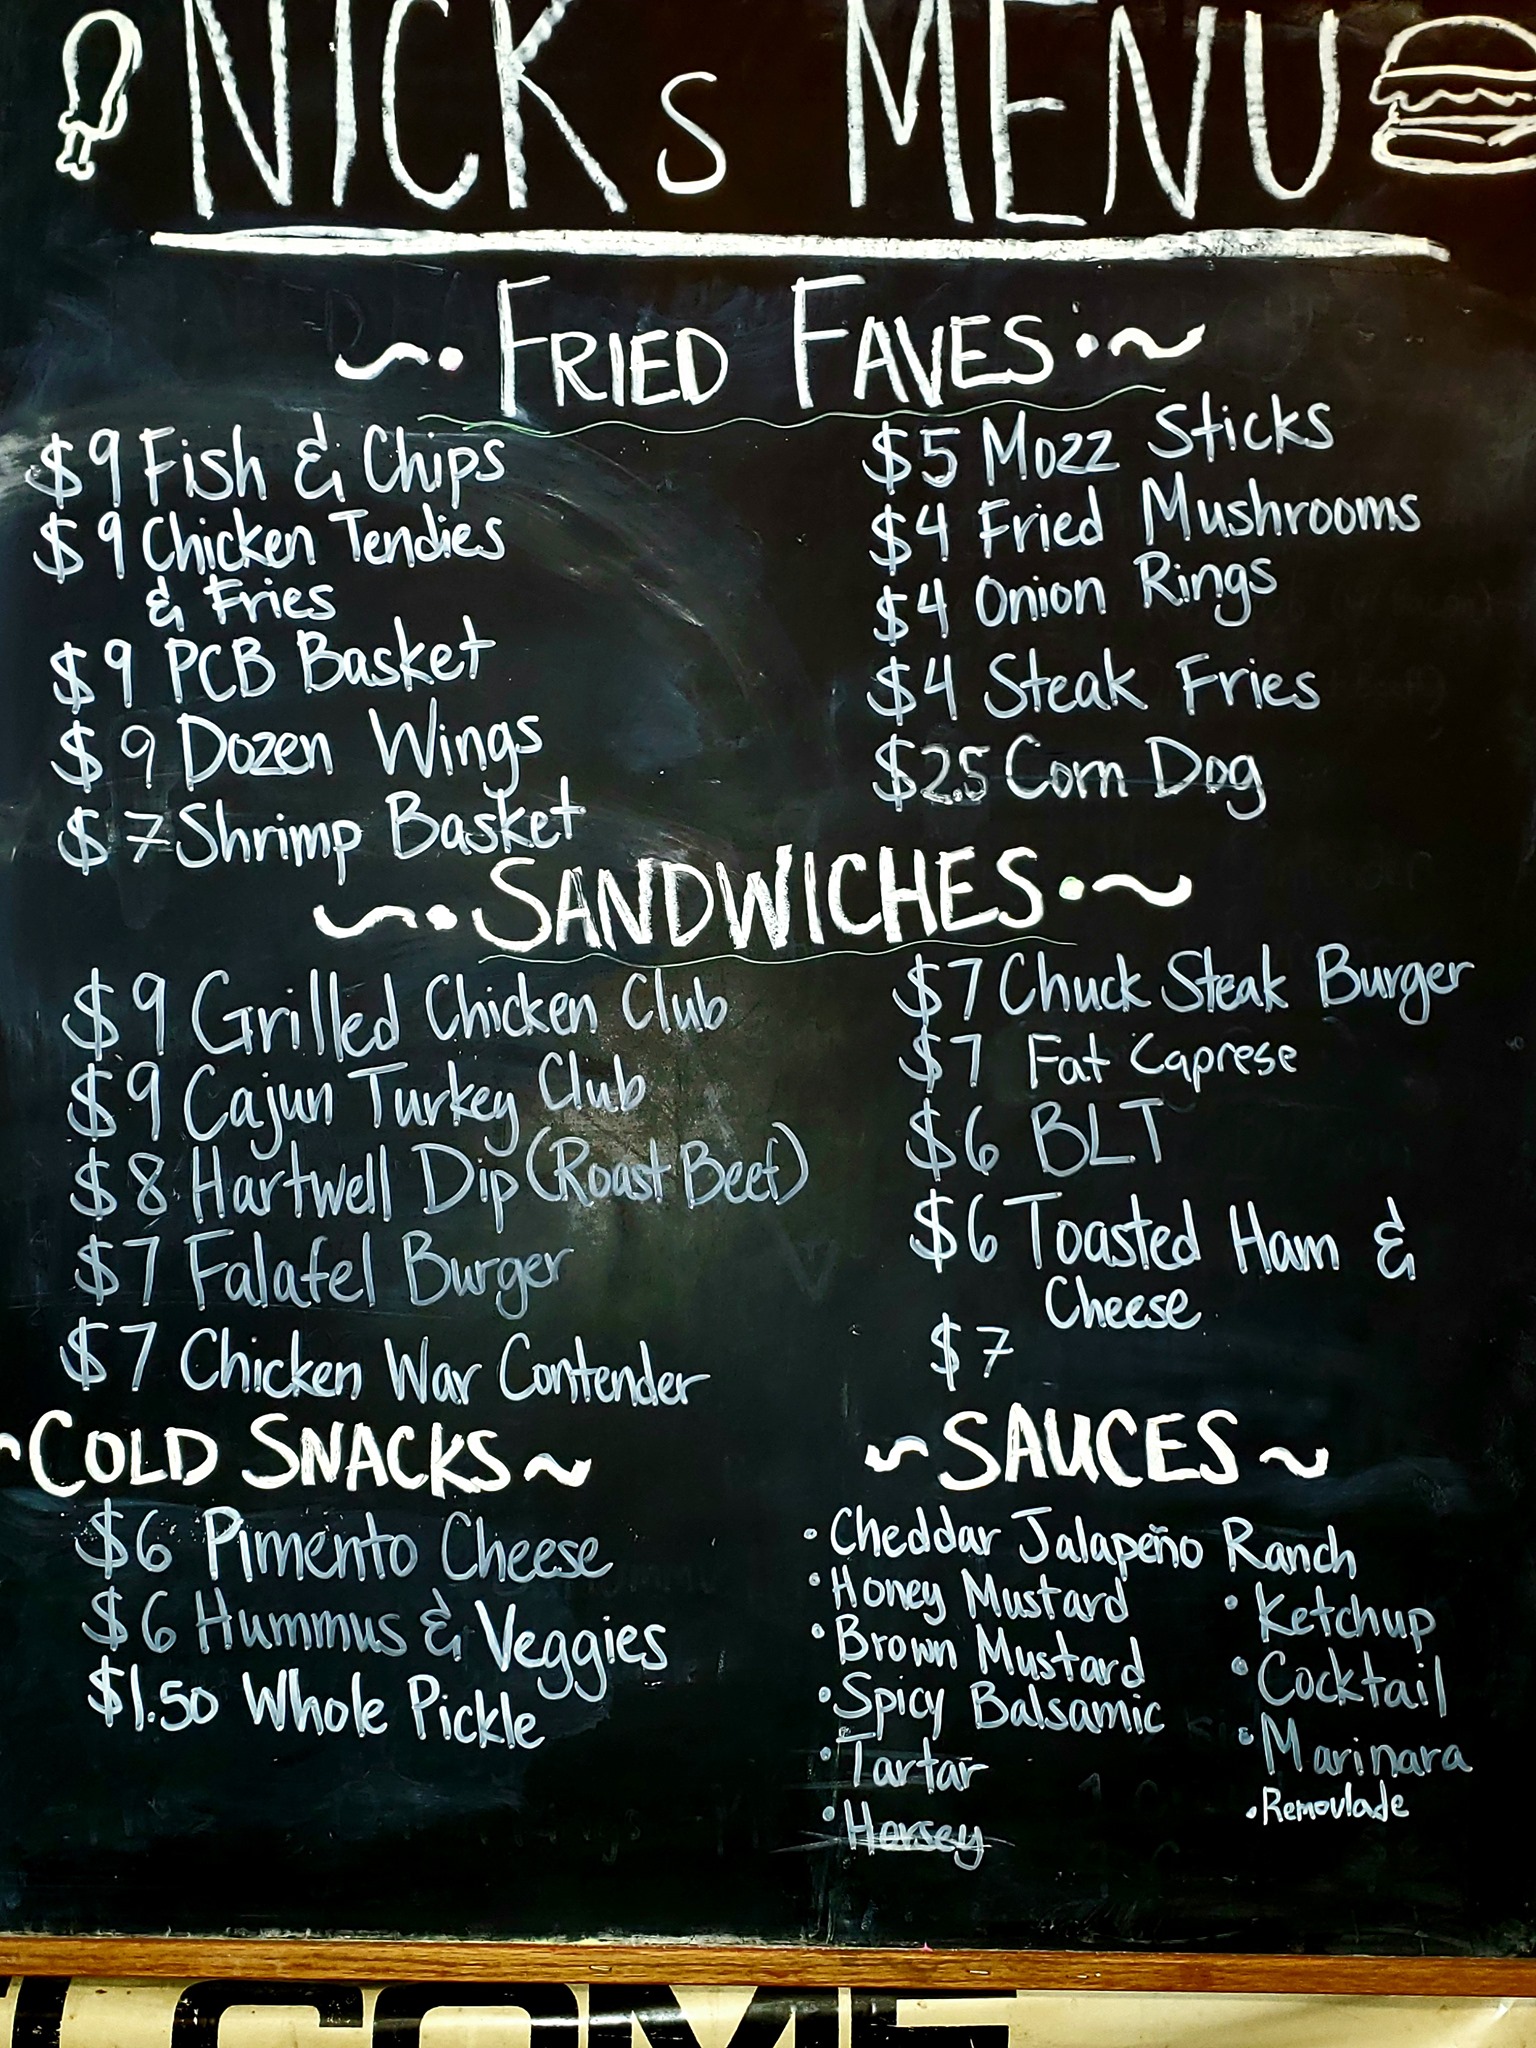 NICKs MENU
FRIED FAVES
$9 Fish & Chips
$9 Chicken Tendies
& Fries
$9 PCB Basket
$9 Dozen Wings
$7 Shrimp Basket
$5 Mozz Sticks
$4 Fried Mushrooms
$4 Onion Rings
$4 Steak Fries
$2.5 Corn Dog
SANDWICHES
$9 Grilled Chicken Club
$9 Cajun Turkey Club
$8 Hartwell Dip (Roast Beef)
$7 Falafel Burger
$7 Chicken War Contender
$7 Chuck Steak Burger
$7 Fat Caprese
$6 BLT
$6 Toasted Ham &
Cheese
$7
COLD SNACKS
$6 Pimento Cheese
$6 Hummus & Veggies
$1.50 Whole Pickle
SAUCES
• Cheddar Jalapeño Ranch
• Honey Mustard
• Brown Mustard
• Spicy Balsamic
• Tartar
• Horsey
• Ketchup
• Cocktail
• Marinara
• Remoulade